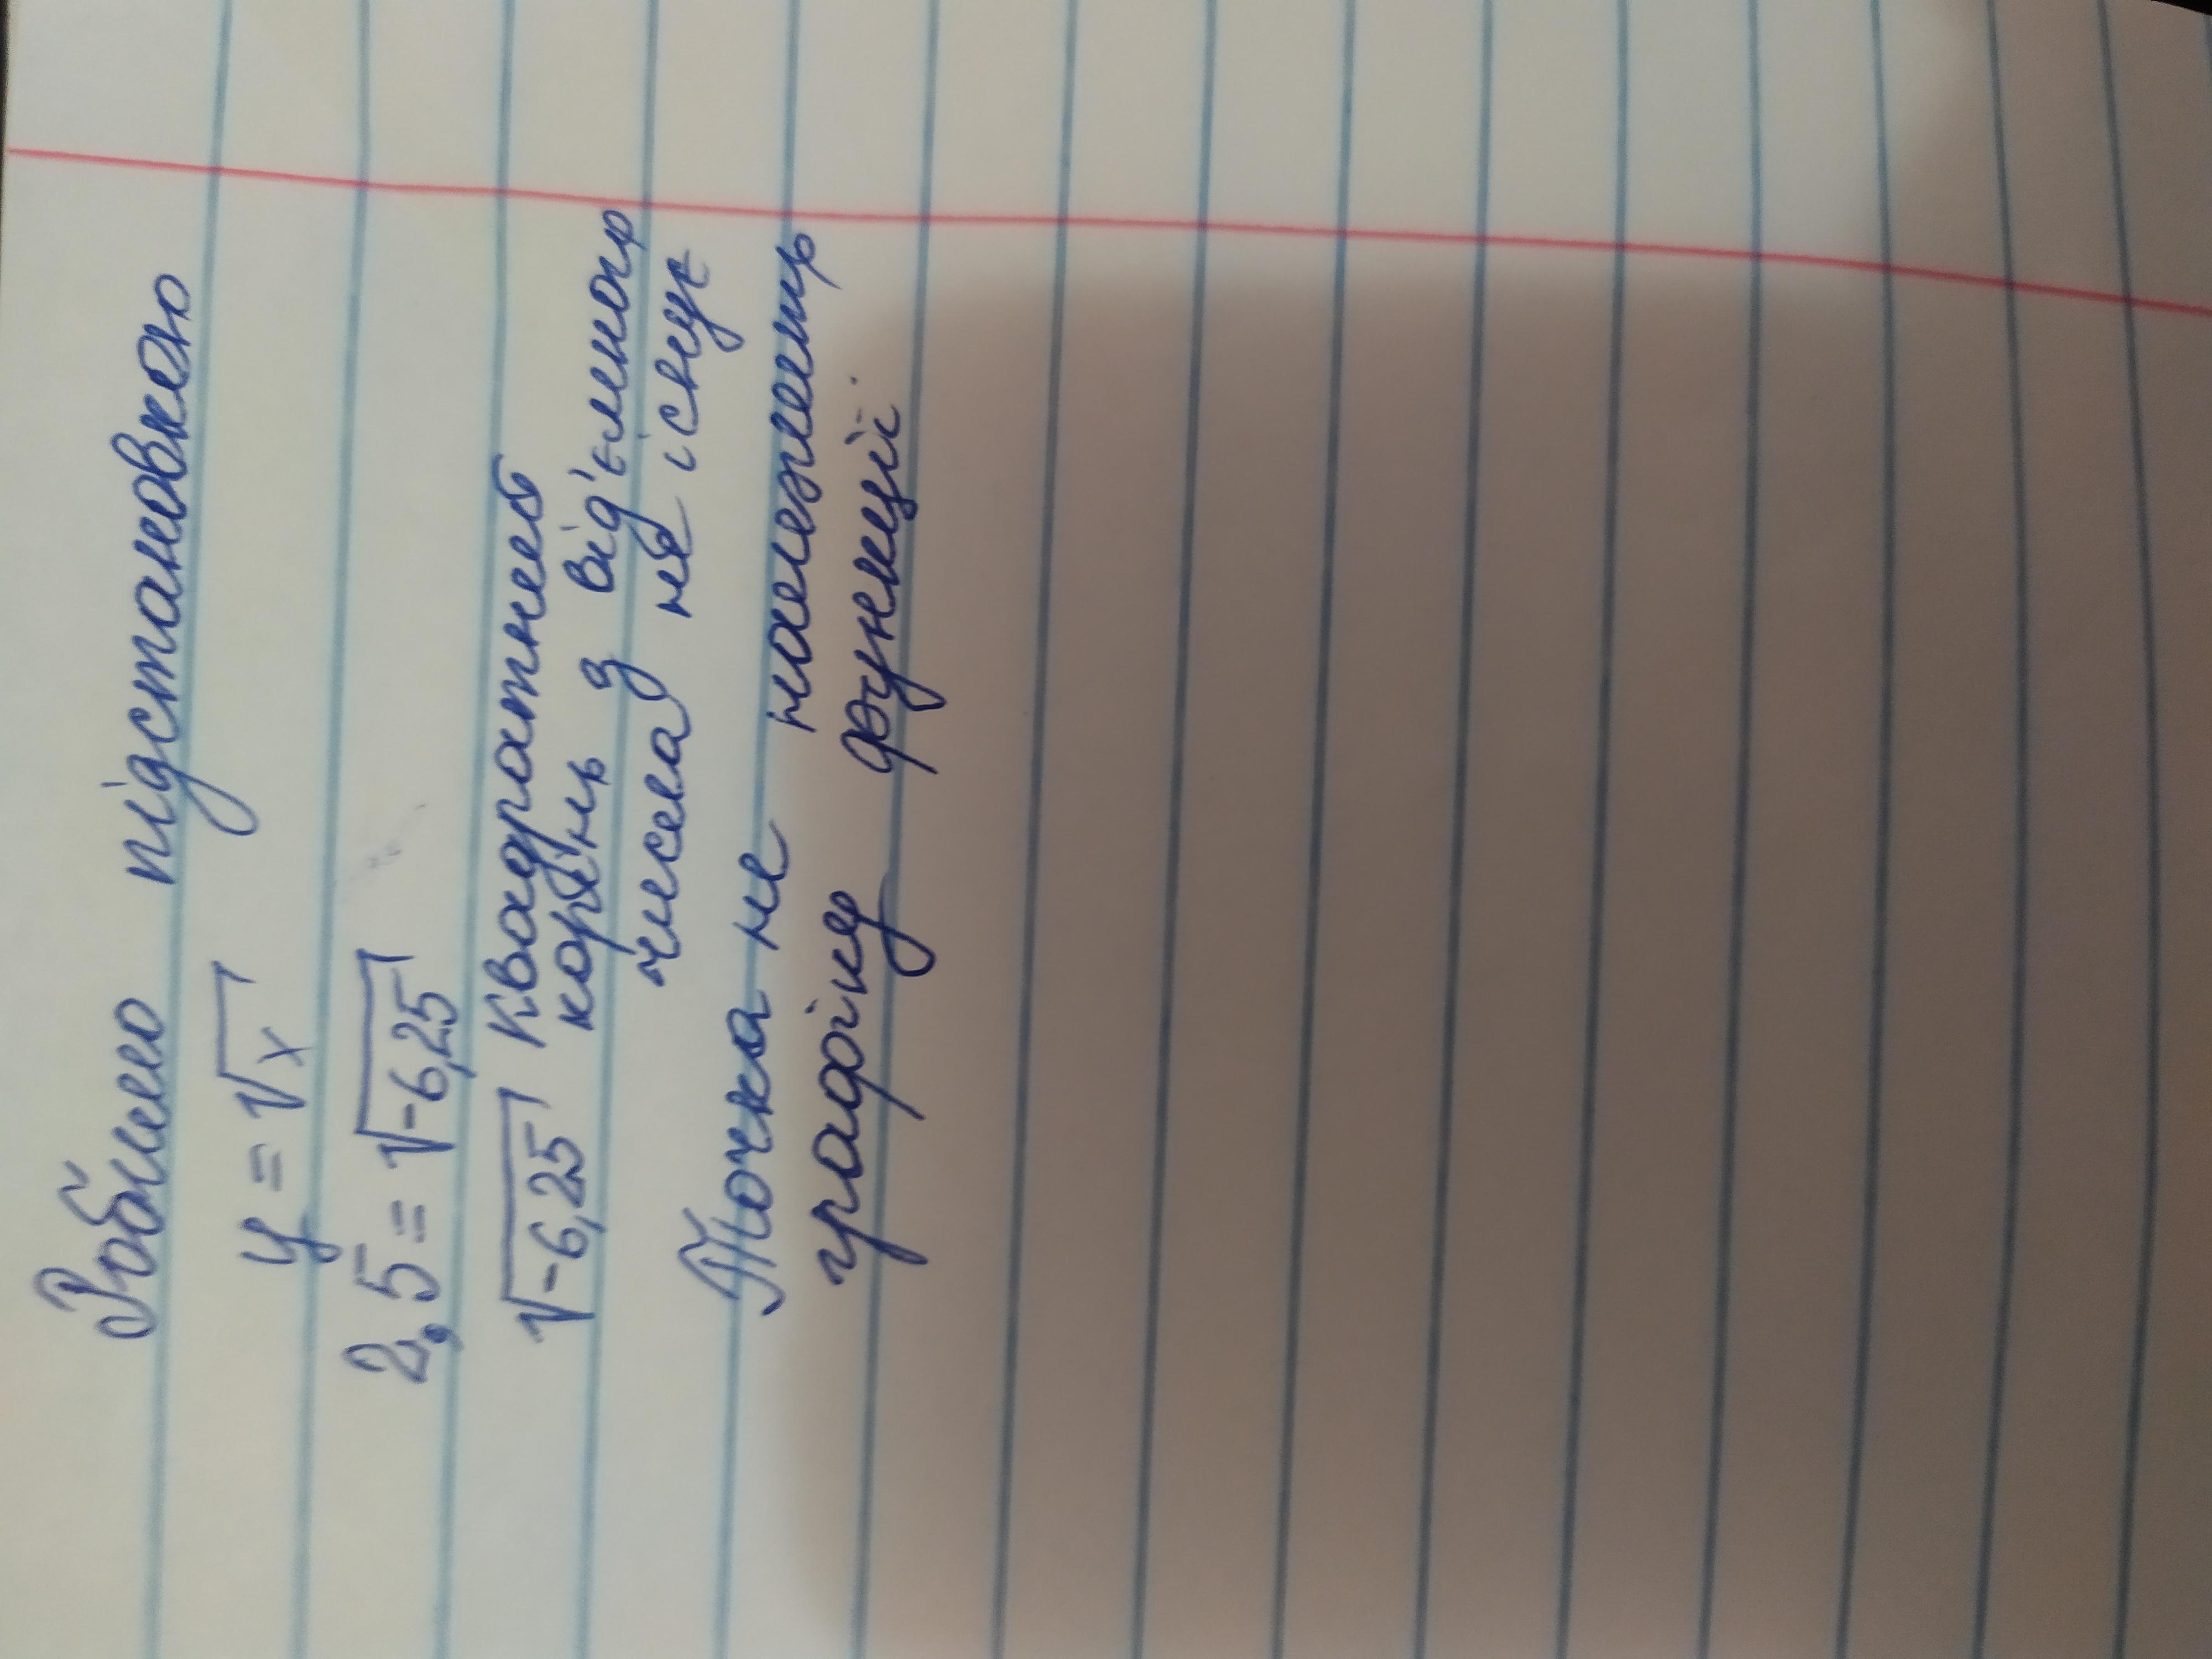 Робимо підстановкою
y = √x
2,5 = √-6,25
√-6,25 Квадратней
корень з від'ємногр
чисела не існує
Точка не належитр
графіку функції.